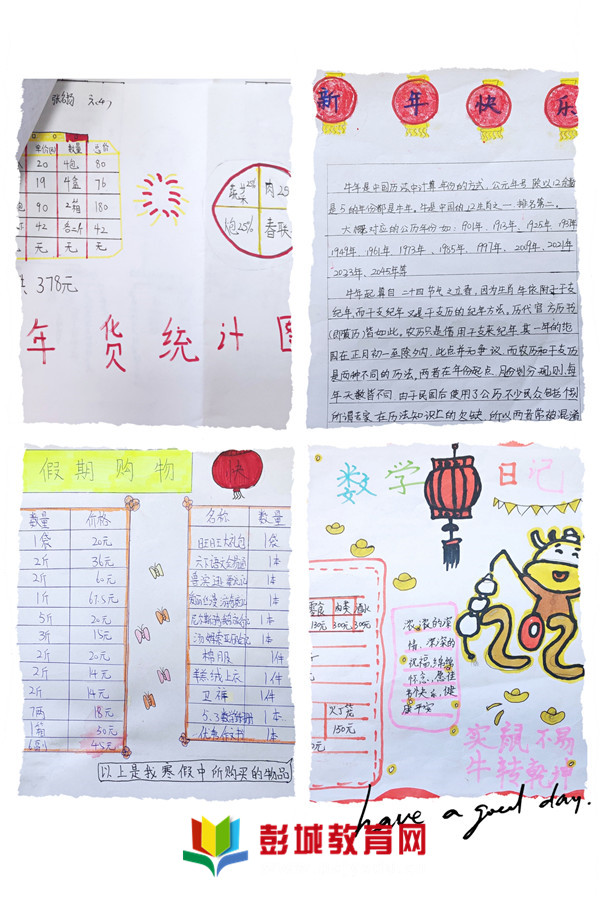 单价(元) 数量 总价
20 4包 80
19 4盒 76
90 2箱 180
42 42
元 元 元
378元
蔬菜
25%
肉25
炮25%
春联
年货统计图
新年快乐
牛年是中国历法中计算年份的方式,公元年号除以12余数
是5的年份都是牛年。牛是中国的12生肖之一,排名第二。
大概对应的公历年份如:901年、1913年、1925年、1937年
1949年、1961年、1973年、1985年、1997年、2009年、2021年
2033年、2045年等
牛年起算自二十四节气之立春,因为生肖年依附于干支
纪年,而干支纪年又是干支历的纪年方法。历代官方历书
(即黄历)皆如此。农历只是借用干支来纪年,其一年的范
围在正月初一至除夕内,此点并无争议。而农历和干支历
是两种不同的历法,两者在年份起点、月份划分规则、每
年天数皆不同。由于民国后使用了公历,不少民众包括个别
所谓专家,在历法知识上的欠缺,所以两者常被混淆
假期购物
快
数量 价格
1袋 20元
2斤 36元
2斤 60元
1瓶 67.5元
5斤 20元
3斤 15元
2斤 20元
2斤 14元
2斤 14元
7两 18元
1箱 50元
45元
名称 数量
旺旺大礼包 1袋
1本
1本
1本
1本
1本
棉服 1件
羊羔绒上衣 1件
卫裤 1件
5.3 1本
1本
以上是我寒假中所购买的物品
数学日记
零食 肉类 春火
130元 300元 30元
150元
浓浓的深
情、深深的
祝福,绵绵
怀念,愿佳
节快乐,健
康平安
实鼠不易
牛转乾坤
have a good day.
彭城教育网